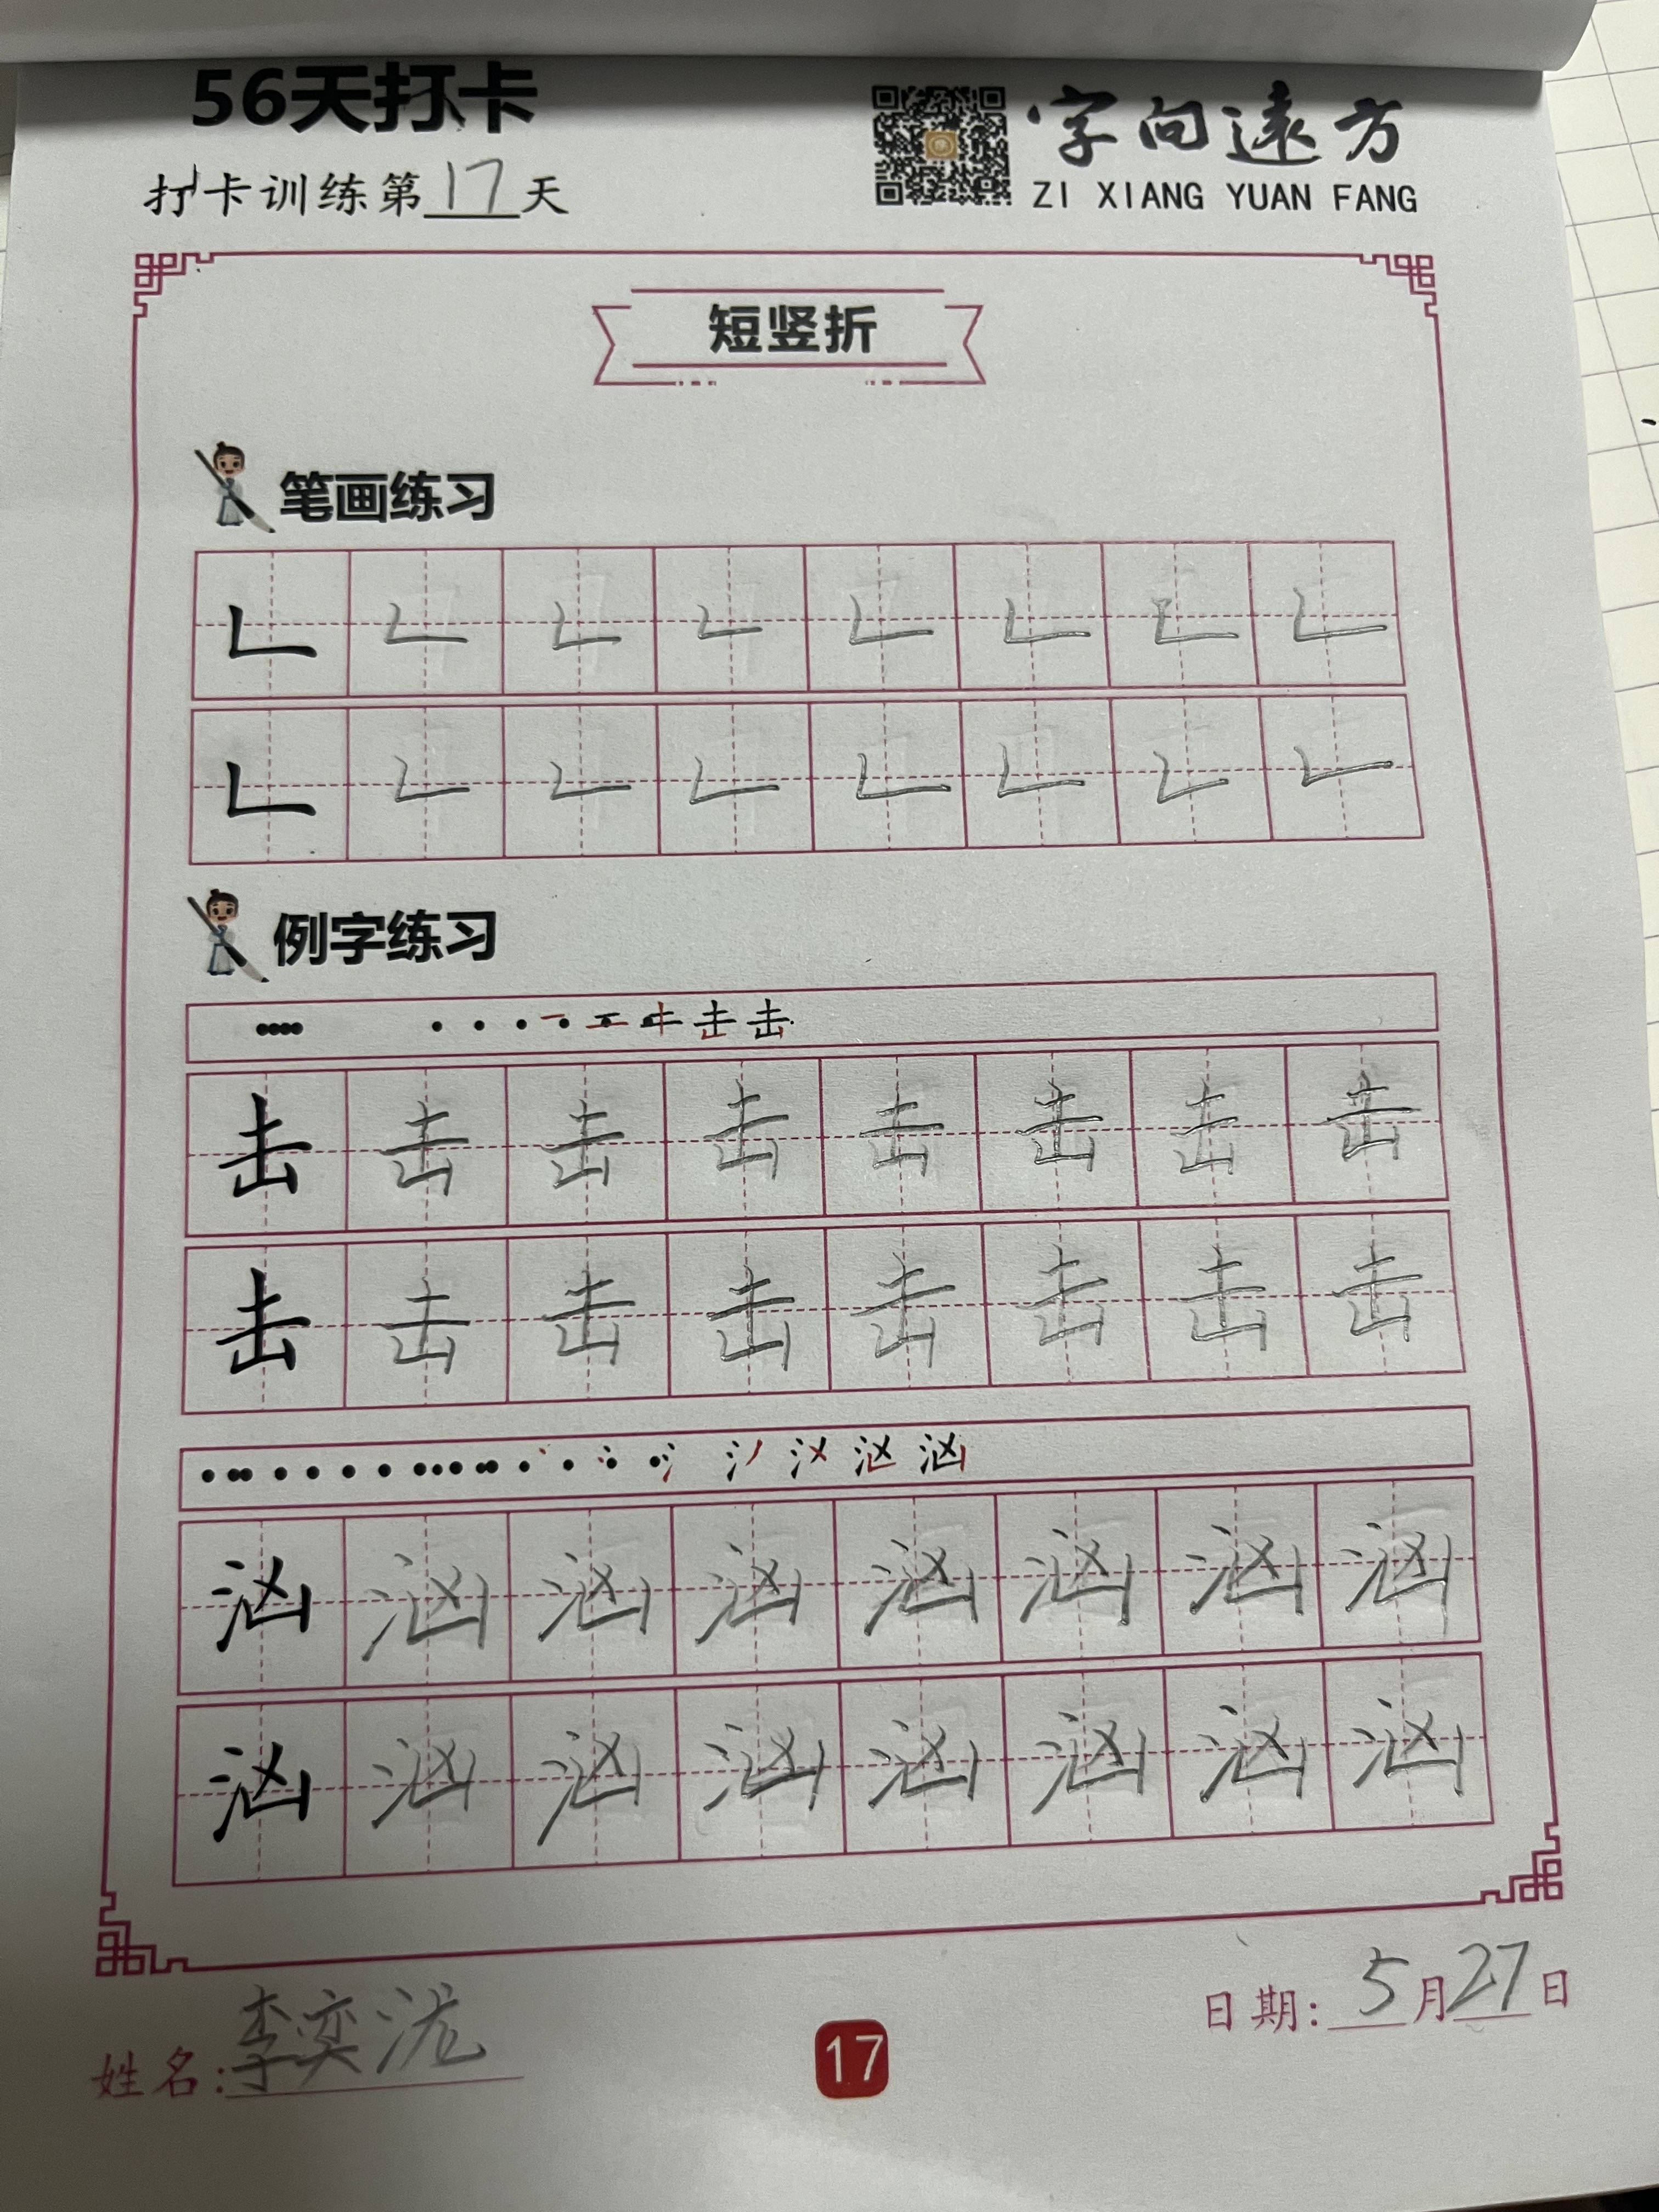 56天打卡
字向遠方
打卡训练第17天
ZI XIANG YUAN FANG
短竖折
笔画练习
例字练习
击 击
击 击 击 击 击 击 击 击
击 击 击 击 击 击 击 击
氵 汹 汹
汹 汹 汹 汹 汹 汹 汹 汹
汹 汹 汹 汹 汹 汹 汹 汹
日期: 5月27日
姓名: 李奕泷
17